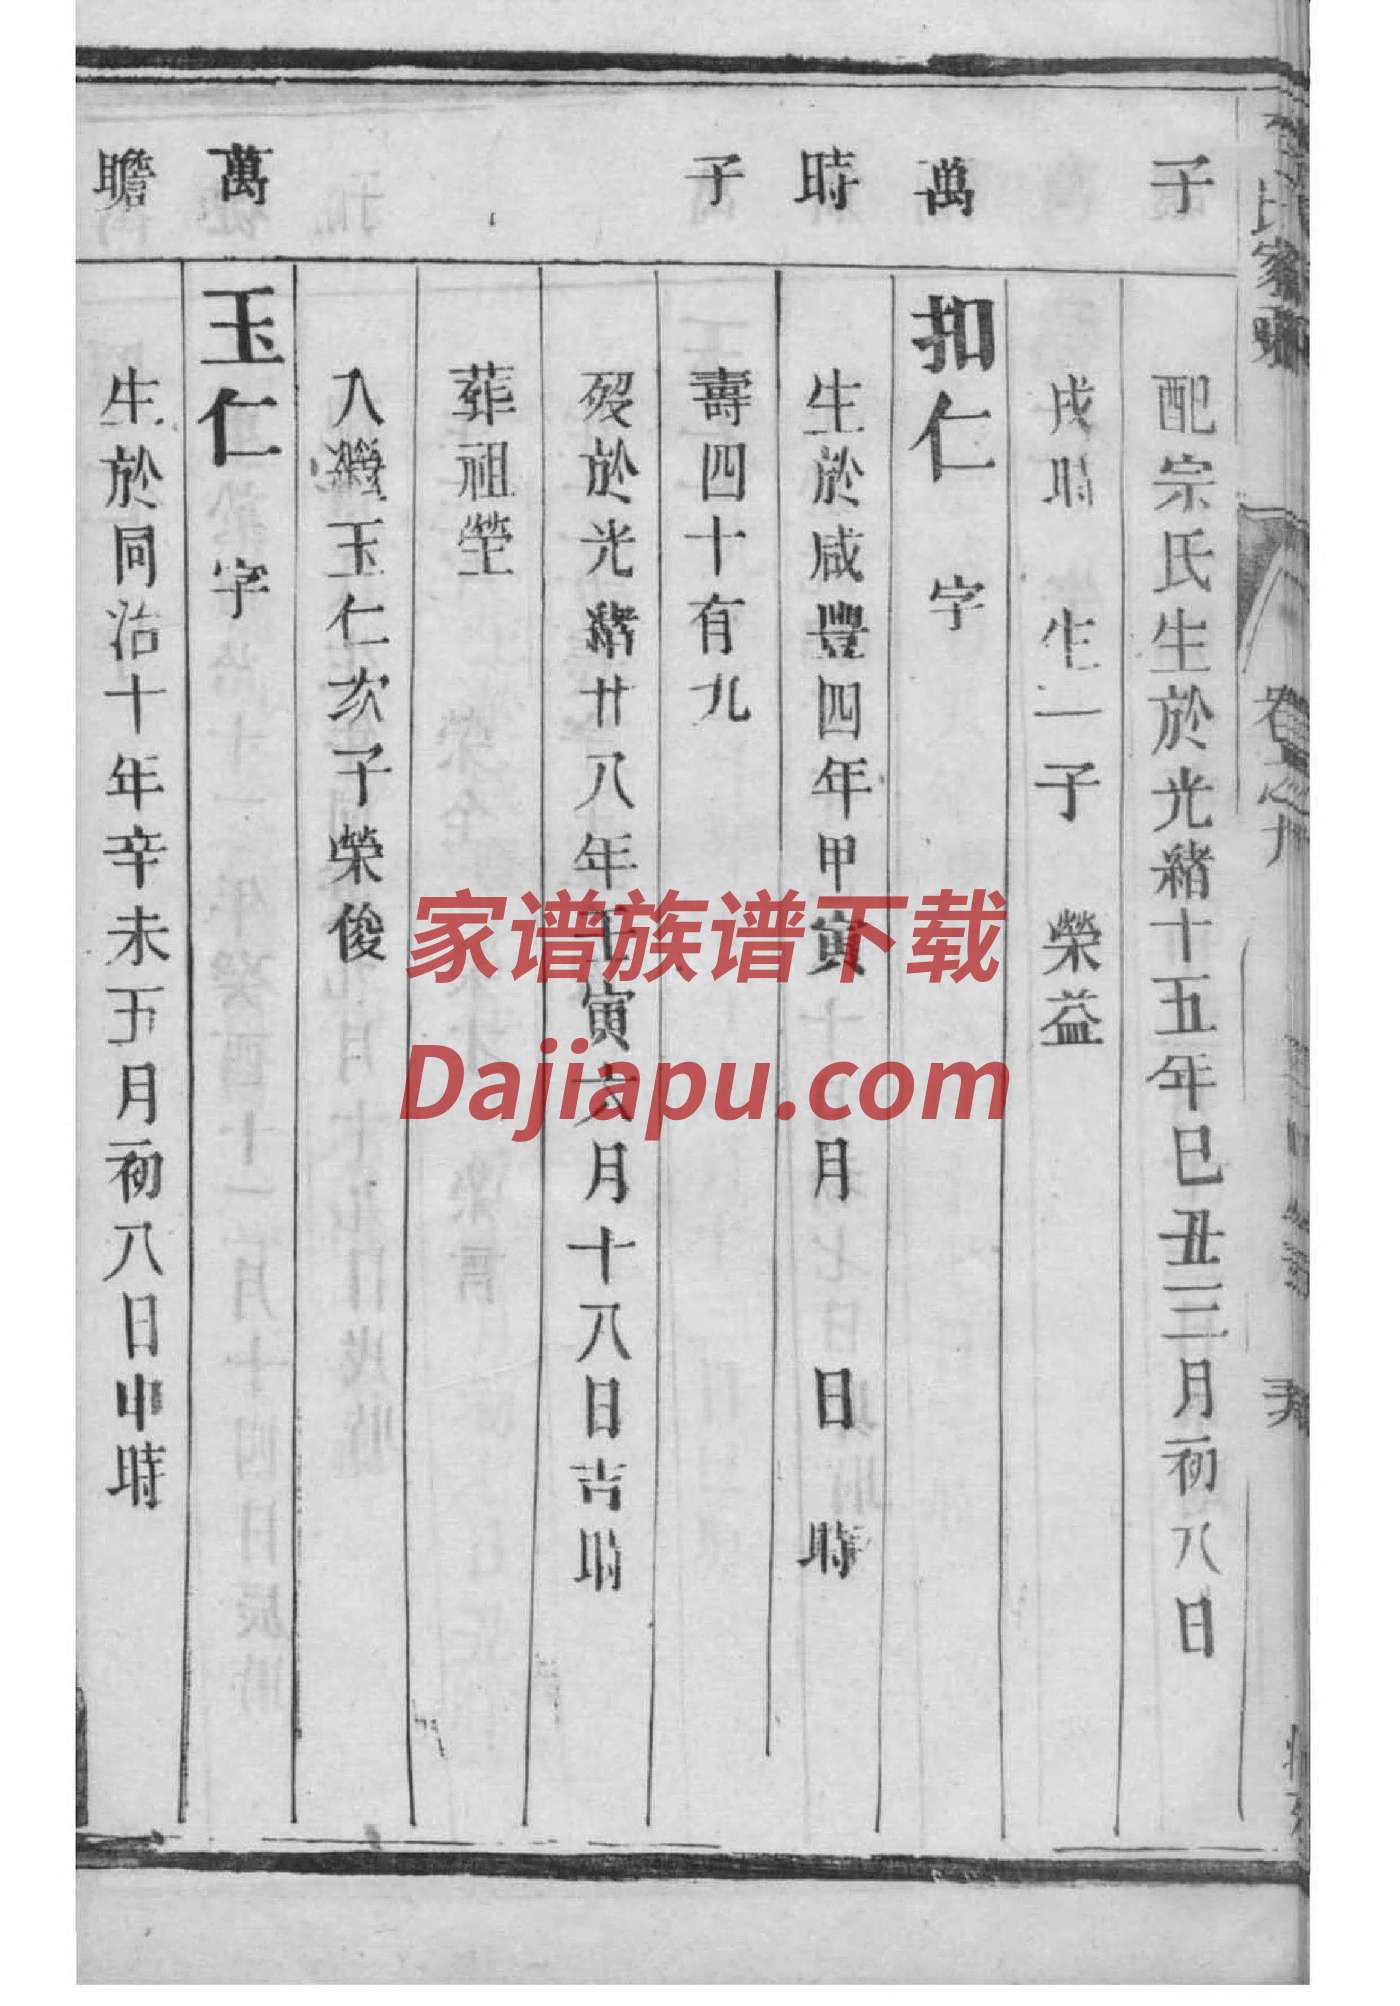 子
配宗氏生於光緒十五年巳丑三月初八日
戌時 生一子 榮益
萬
扣仁 字
時
生於咸豐四年甲寅 月 日 時
子
壽四十有九
歿於光緒廿八年壬寅六月十八日吉時
葬祖塋
入繼玉仁次子榮俊
萬
玉仁 字
瞻
生於同治十年辛未五月初八日申時
家谱族谱下载
Dajiapu.com